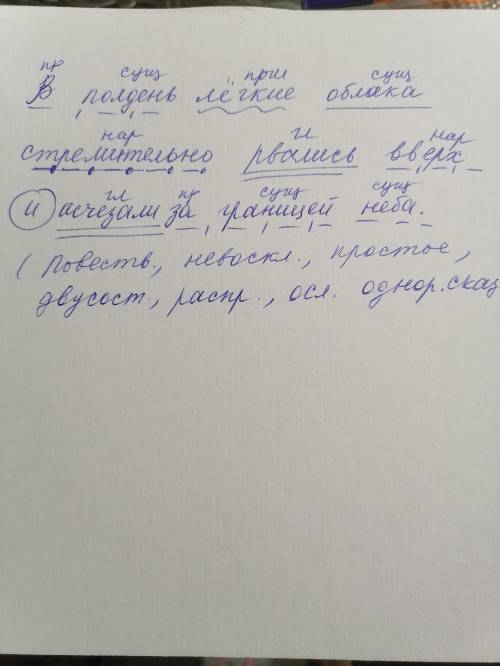 пр сущ прил сущ
В полдень лёгкие облака
нар гл нар
стремительно рвались вверх
гл пр сущ сущ
и исчезали за границей неба.
(Повеств., невоскл., простое,
двусост., распр., осл. однор. сказ